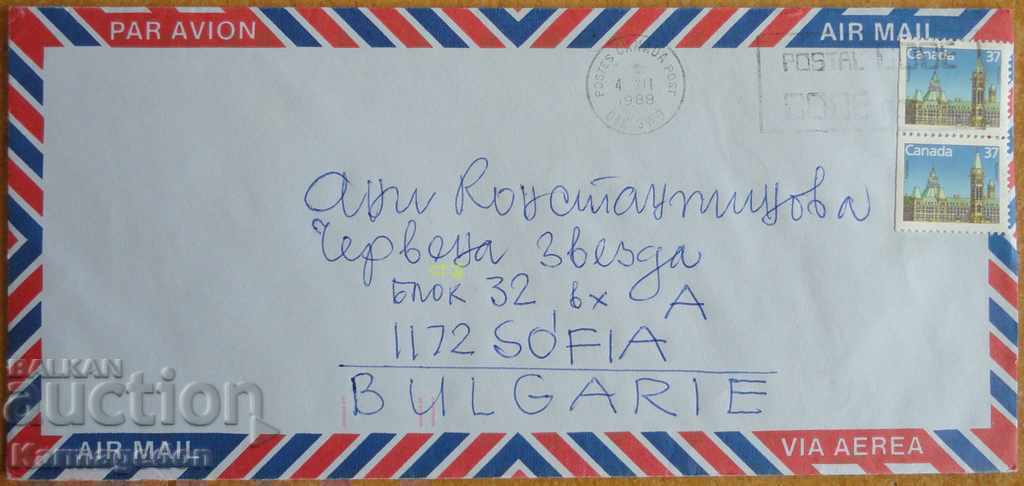 PAR AVION
AIR MAIL
POSTES CANADA POST
4 XII
1988
POSTAL CODE
CODE
Canada 37
Canada 37
Ани Константинова
Червена звезда
блок 32, вх А
1172 SOFIA
BULGARIE
BALKAN
auction
Karmageeon
AIR MAIL
VIA AEREA